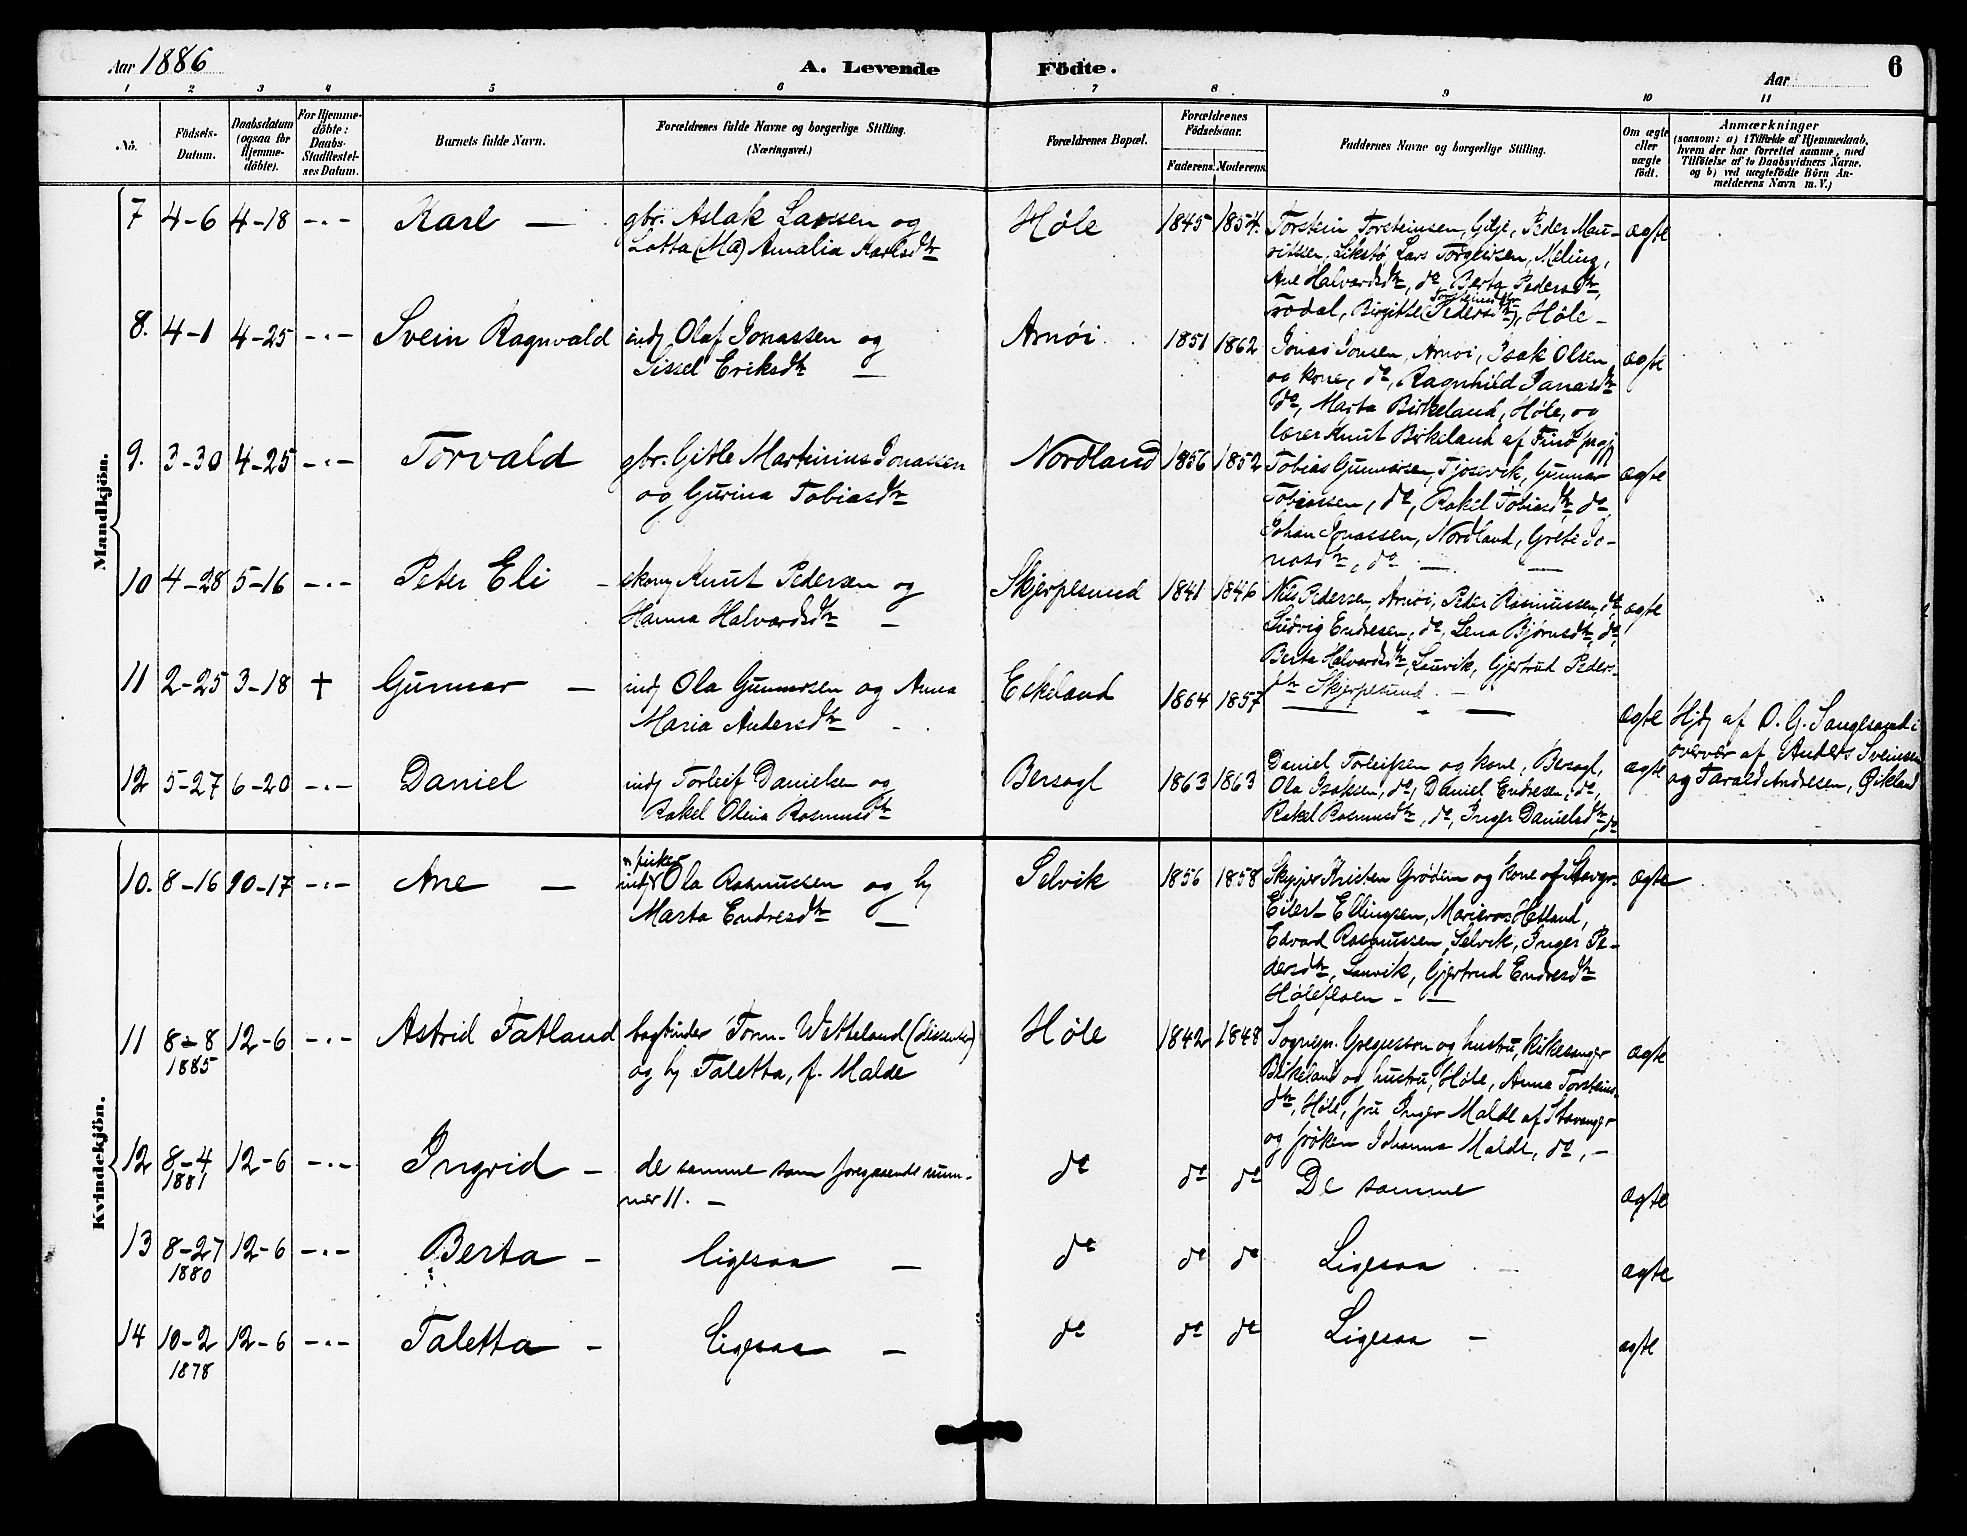 Aar 1886
A. Levende Födte.
Aar
6
1 2 3 4 5 6 7 8 9 10 11
No.
Födsels-
Datum.
Daabsdatum
(ogsaa for
Hjemme-
döbte).
For Hjemme-
döbte:
Daabs-
Stadfæstel-
ses Datum.
Barnets fulde Navn.
Forældrenes fulde Navne og borgerlige Stilling.
(Næringsvei.)
Forældrenes Bopæl.
Forældrenes
Födselsaar.
Faderens. Moderens.
Faddernes Navne og borgerlige Stilling.
Om ægte
eller
uægte
födt.
Anmærkninger
(saasom: a) i Tilfælde af Hjemmedaab,
hvem der har forrettet samme, med
Tilföielse af to Daabsvidners Navne.
og b) ved uægtefödte Börn An-
melderens Navn m. V.)
Mandkjön.
7 4-6 4-18 -"- Karl —
gbr. Aslak Lassen og
Lotta (Ma) Amalia Karlsdtr
Høle 1845 1854.
Torstein Torsteinsen, Gilje, Peder Mau-
ritssen, Likstø, Lars Torgersen, Meling,
Ane Halvardsdtr, do, Berta Pedersdtr,
Torsteinsdtr
Todal, Birgitte (Pedersdtr), Høle -
ægte
8. 4-1 4-25 -"- Svein Ragnvald
indj Olaf Jonassen og
Sissel Eriksdtr —
Arnøi 1851 1862
Jonas Jonsen, Arnøi, Isak Olsen
og kone, do, Ragnhild Jonasdtr
do, Marta Birkeland, Høle, og
lærer Knut Birkeland af Finø prgj
ægte
9. 3-30 4-25 -"- Torvald
gbr. Gitle Martinius Jonassen
og Gurina Tobiasdtr
Nordland 1856 1852
Tobias Gunnarsen, Tjosevik, Gunnar
Tobiassen, do, Rakel Tobiasdtr, do
Johan Jonassen, Nordland, Grete Jo-
nasdtr, do — —
ægte
10 4-28 5-16 -"- Peter Eli -
skomg Knut Pedersen og
Hanna Halvardsdtr —
Skjerpesund 1841 1846
Nils Pedersen, Arnøi, Peder Rasmussen, do,
Ludvig Endresen, do, Lena Bjørnsdtr, do,
Berta Halvardsdtr, Lauvik, Gjertrud Peders-
dtr Skjerpesund. —
ægte
11 2-25 3-18 † Gunnar —
indj Ola Gunnarsen og Anna
Maria Andersdtr -
Eskeland 1864 1857
— " —
ægte
Hjdj af O. G. Sanglesand i
overvær af Anders Sveinsen
og Tarald Andresen, Økland
12 5-27 6-20 -"- Daniel
indj Torleif Danielsen og
Rakel Olina Rasmusdtr
Bersagl 1863 1863
Daniel Torleifsen og kone, Bersagl,
Ola Isaksen, do, Daniel Endresen, do,
Rakel Rasmusdtr, do, Inger Danielsdtr, do
ægte
Kvindekjön.
10. 8-16 10-17 -"- Ane —
n fisker
indj Ola Rasmussen og hj
Marta Endresdtr —
Selvik 1856 1858
Skipper Kristen Grødem og kone af Stavgr.
Eilert Ellingsen, Marieros Hetland,
Edvard Rasmussen, Selvik, Inger Pe-
dersdtr, Lauvik, Gjertrud Endresdtr
Hølefloen - —
ægte
11 8-8 12-6 -"- Astrid Tatland
1885
bogbinder Torm. Wetteland (dissenter)
og hj Taletta, f. Malde
Høle 1842 1848
Sognepr. Gregusson og hustru, kirkesanger
Birkeland og hustru, Høle, Anna Torsteins-
dtr, Høle, fru Inger Malde af Stavanger
og frøken Johanna Malde, do, -
ægte
12 8-4 12-6 -"- Ingrid -
1881
de samme som foregaaende num-
mer 11. —
do do do De samme ægte
13 8-27 12-6 -"- Berta -
1880
ligesaa — do do do Ligesaa — ægte
14 10-2 12-6 -"- Taletta -
1878
ligesaa — do do do Ligesaa - ægte